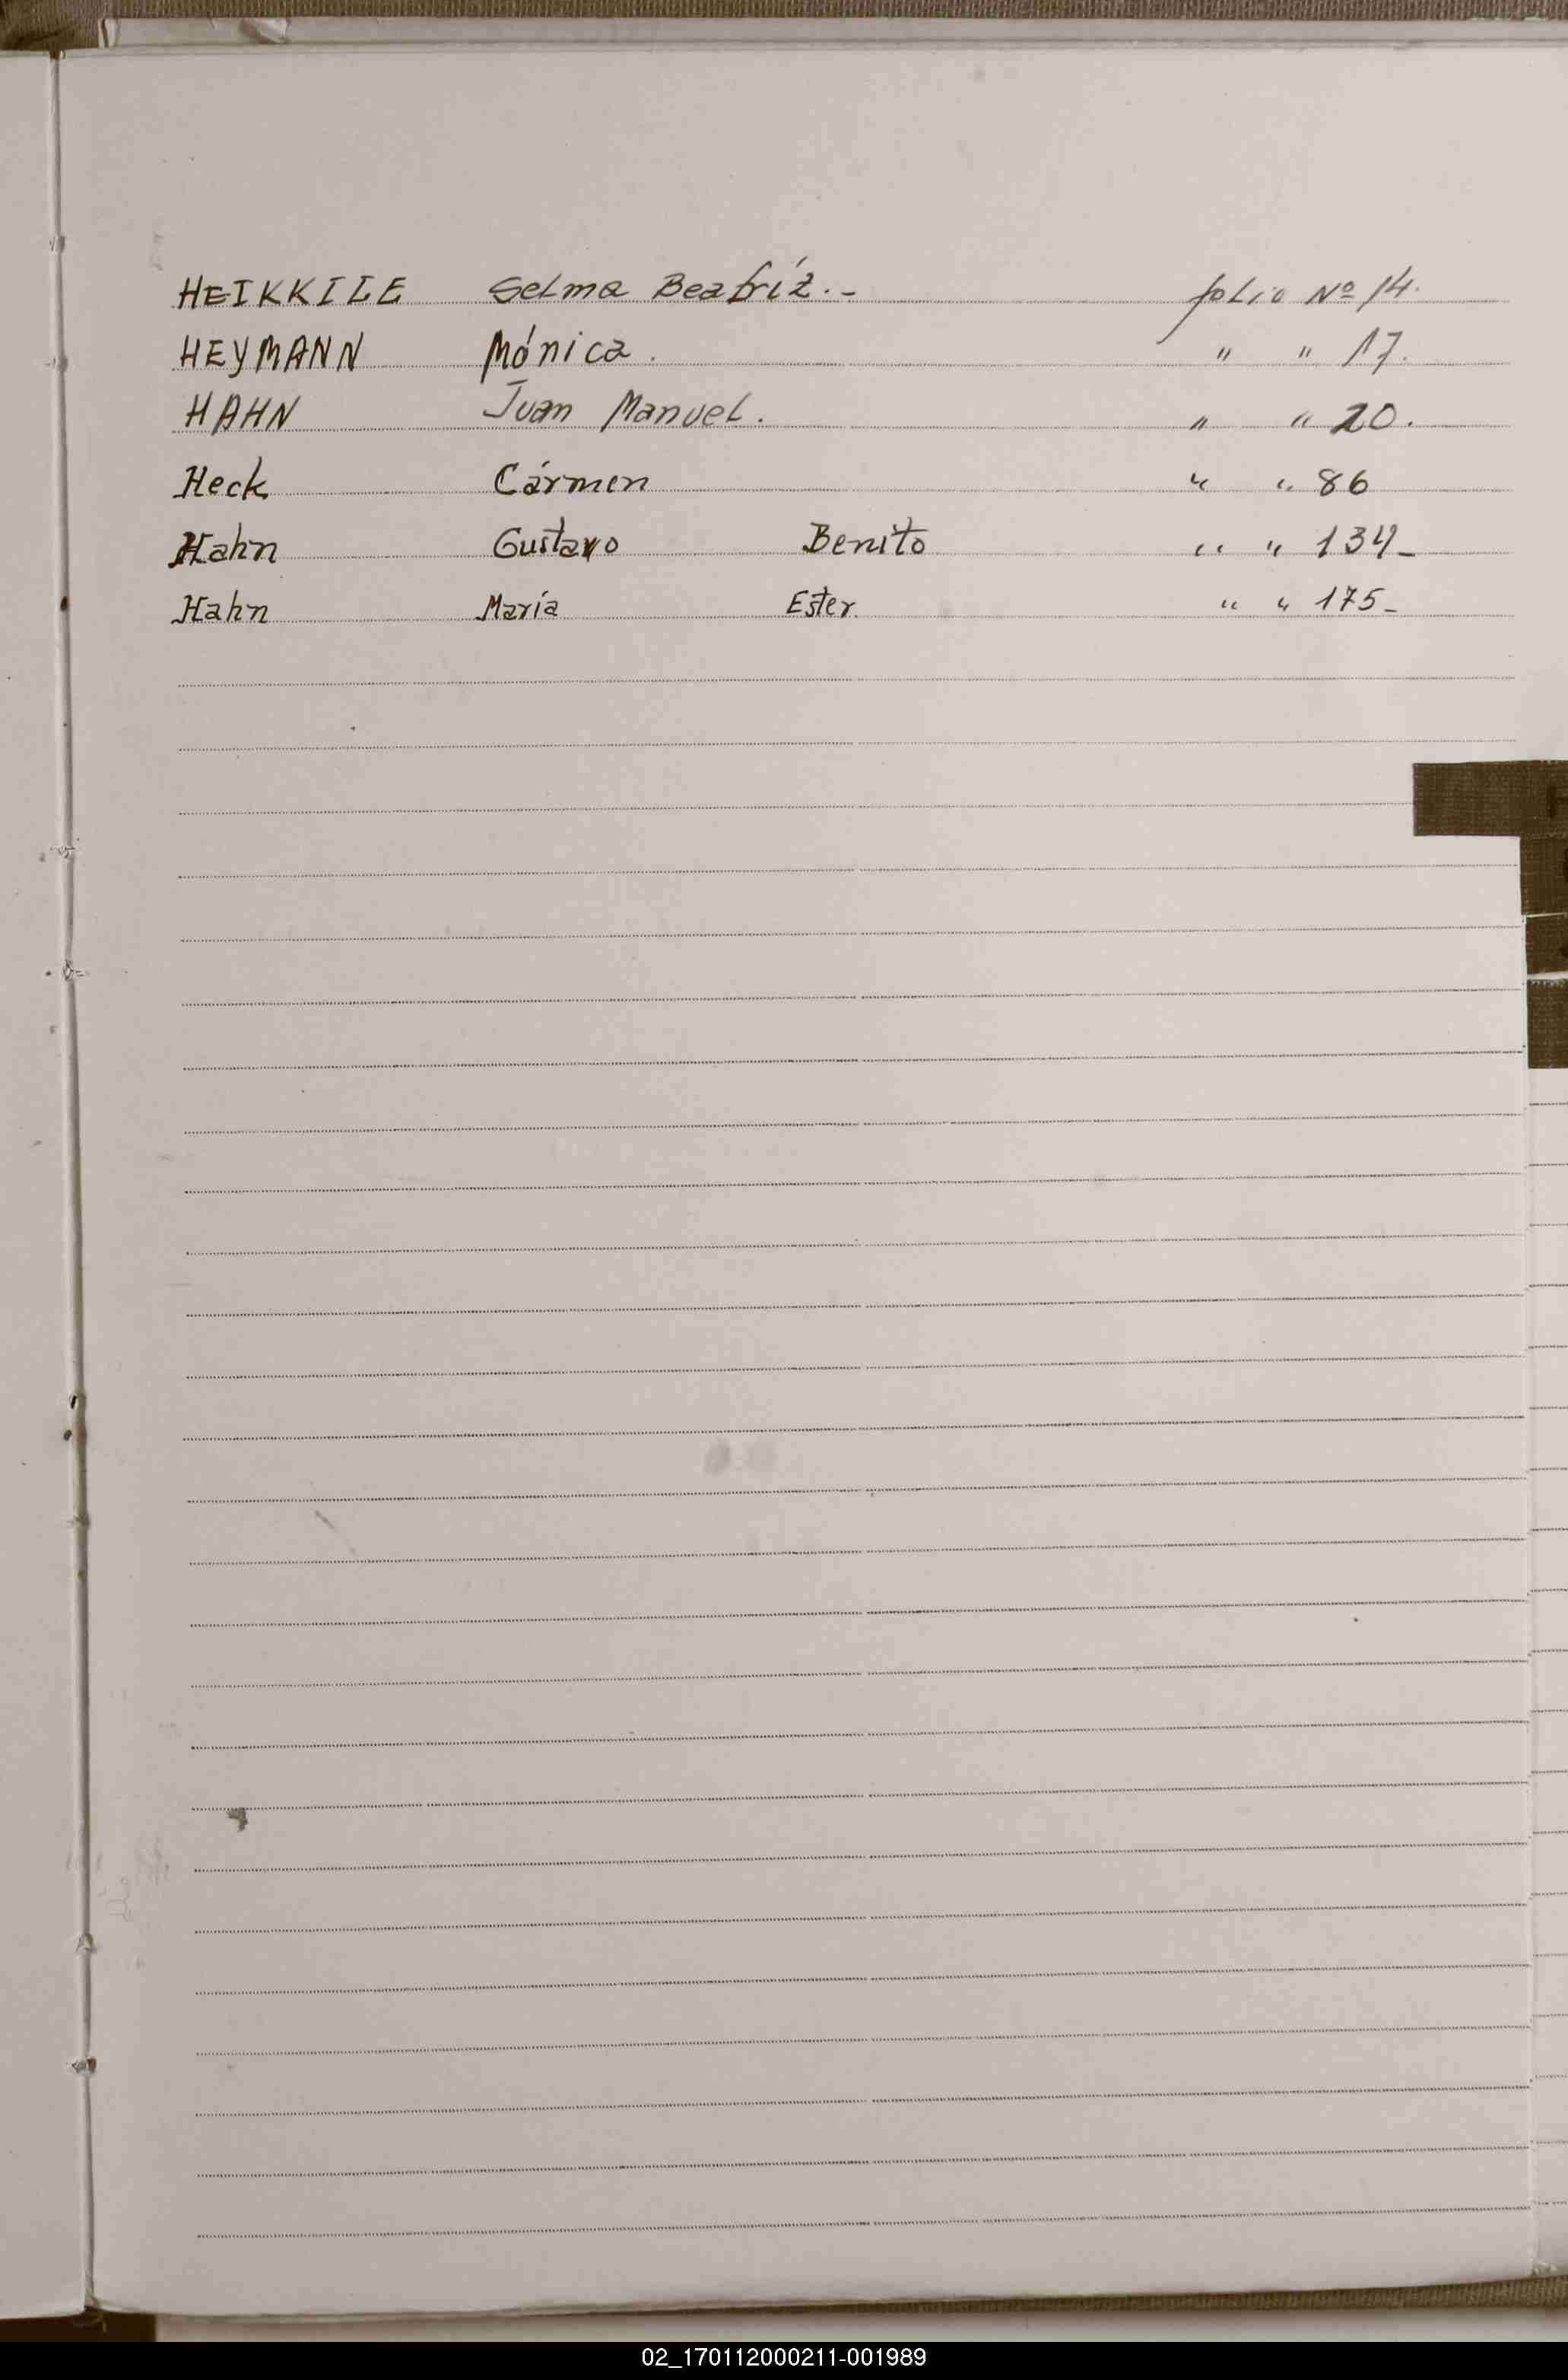 HEIKKILE Selma Beatríz.- folio Nº 14.
HEYMANN Mónica. " " 17.
HAHN Juan Manuel. " " 20.
Heck Cármen " " 86
Hahn Gustavo Benito " " 134-
Hahn María Ester. " " 175-
02_170112000211-001989